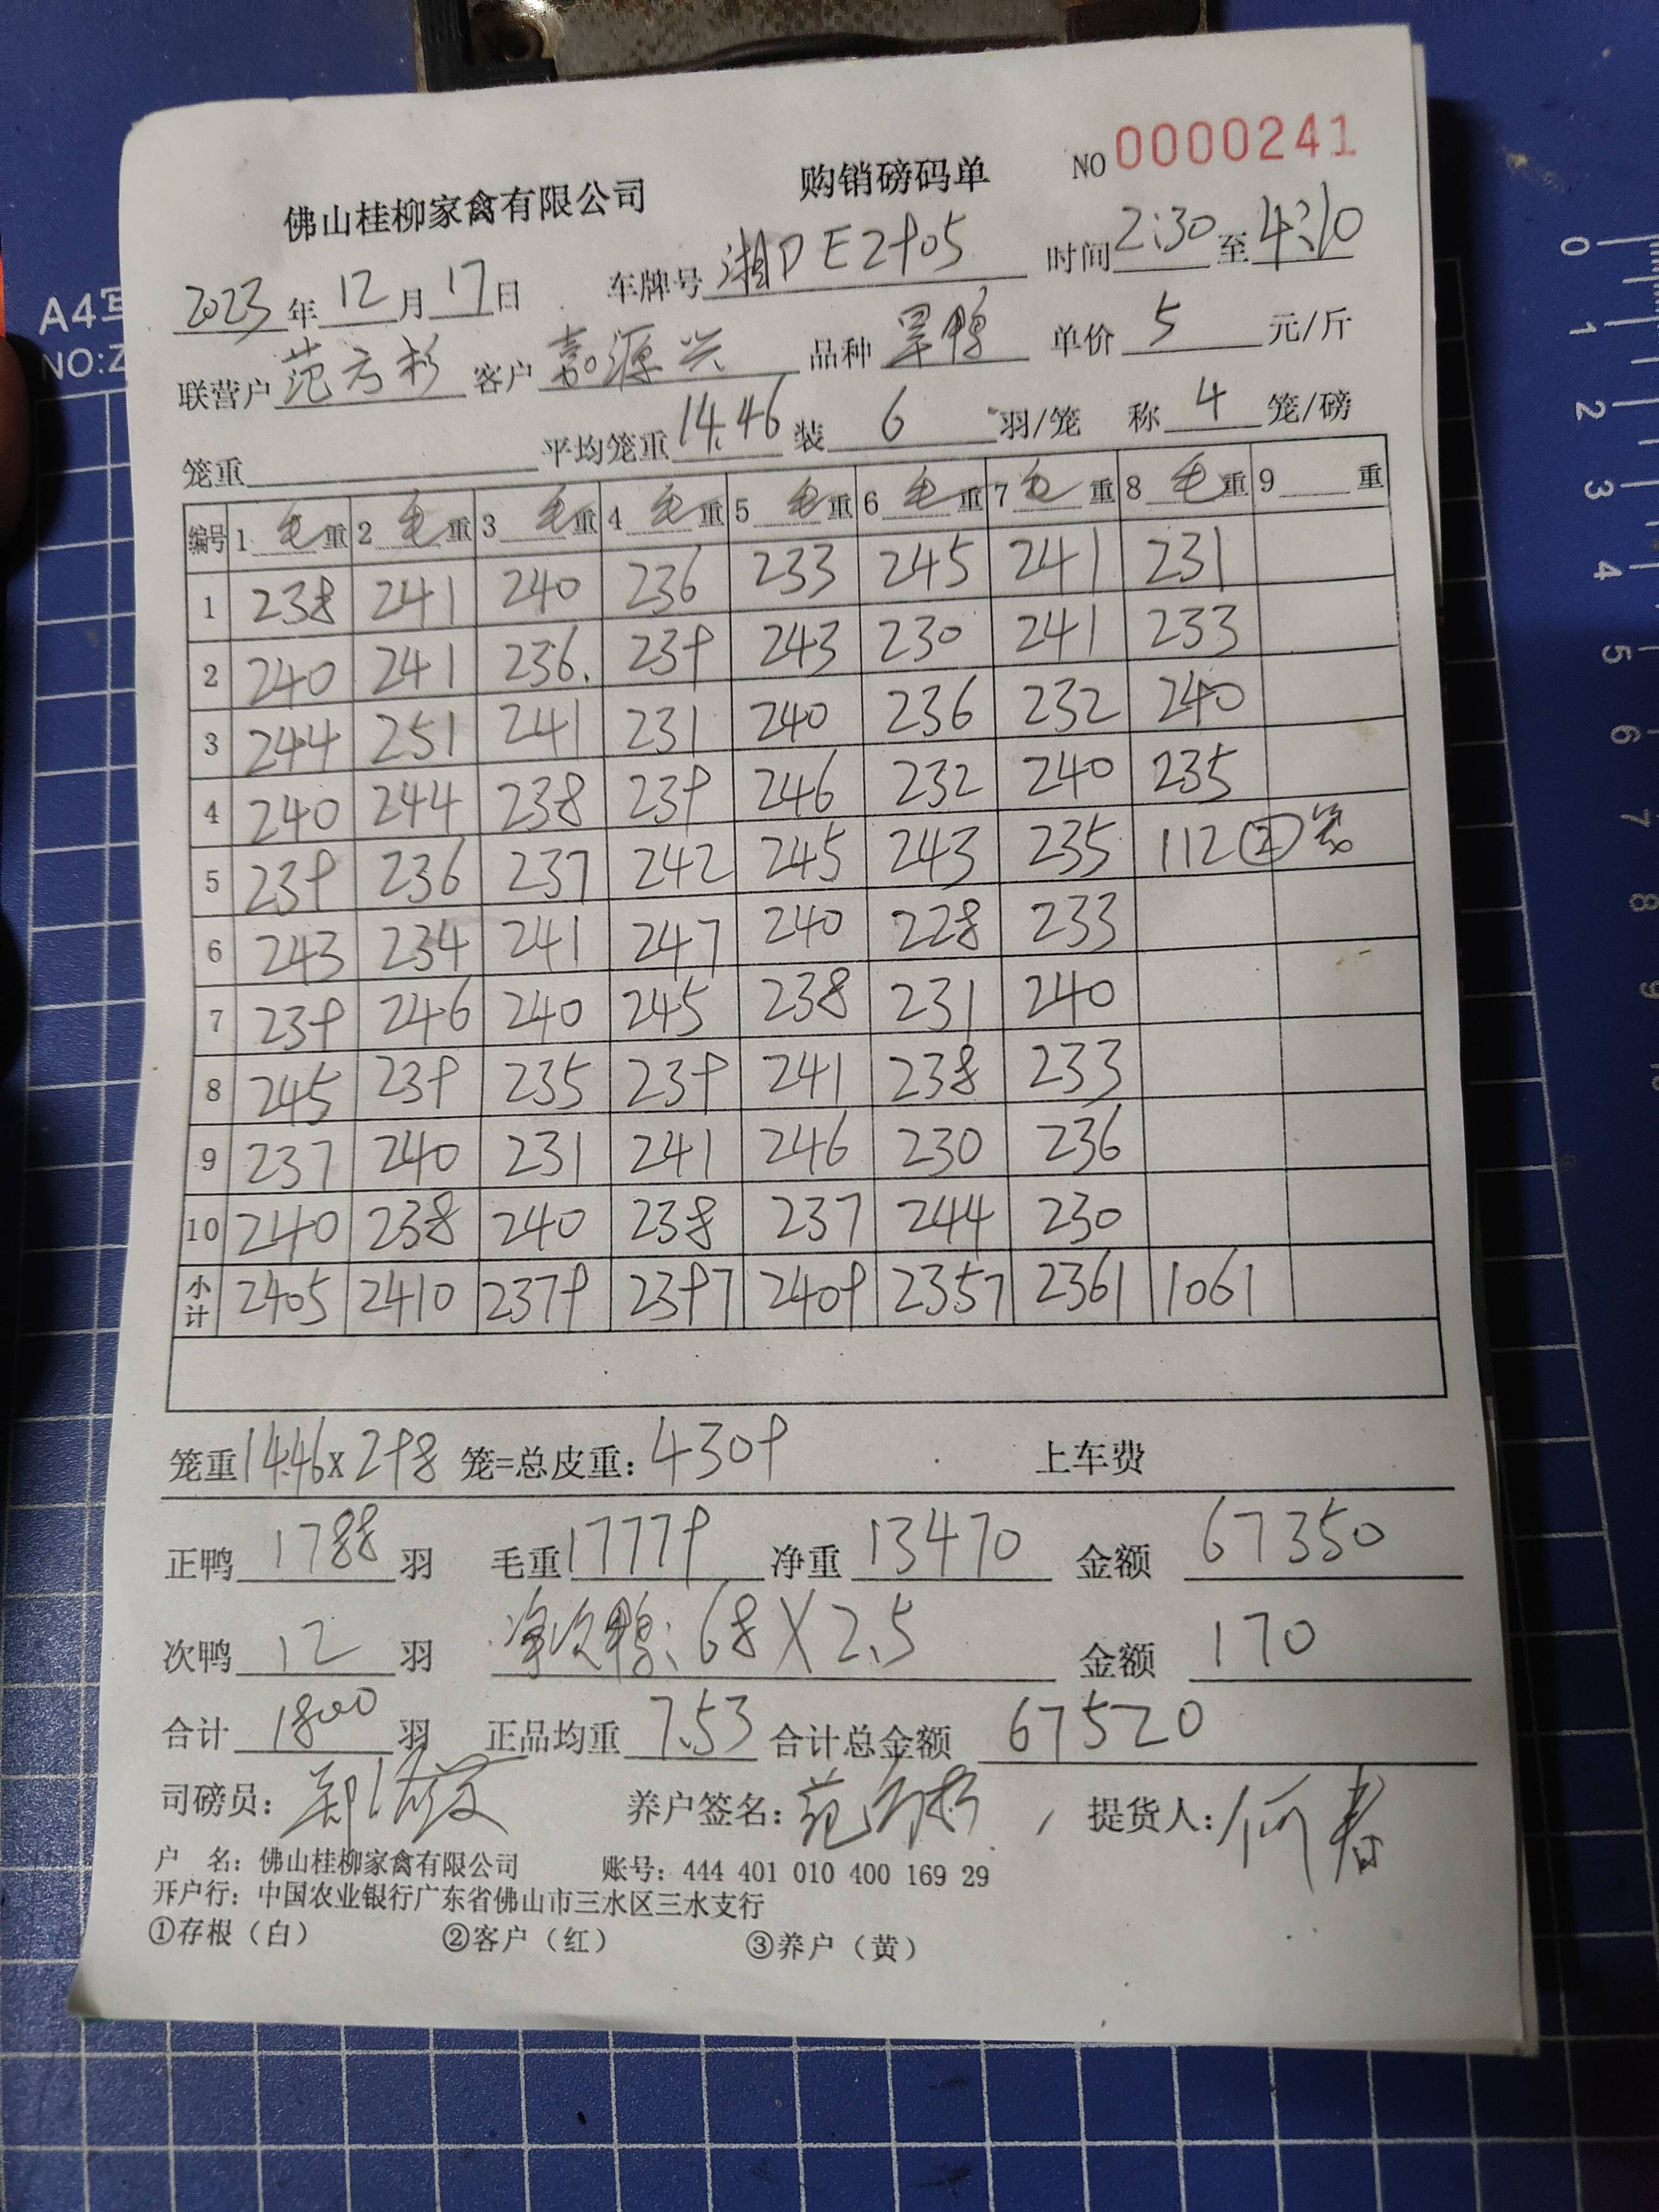 佛山桂柳家禽有限公司 购销磅码单 NO 0000241
2023年12月17日 车牌号 湘DE2905 时间 2:30 至 4:10
联营户 范方杉 客户 嘉源兴 品种 旱鸭 单价 5 元/斤
笼重 平均笼重 14.46 装 6 羽/笼 称 4 笼/磅
编号 1 毛重 2 毛重 3 毛重 4 毛重 5 毛重 6 毛重 7 毛重 8 毛重 9 重
1 238 241 240 236 233 245 241 231
2 240 241 236. 239 243 230 241 233
3 244 251 241 231 240 236 232 240
4 240 244 238 239 246 232 240 235
5 239 236 237 242 245 243 235 112 ② 笼
6 243 234 241 247 240 228 233
7 239 246 240 245 238 231 240
8 245 239 235 239 241 238 233
9 237 240 231 241 246 230 236
10 240 238 240 238 237 244 230
小计 2405 2410 2379 2397 2409 2357 2361 1061
笼重 14.46 x 298 笼=总皮重: 4309 上车费
正鸭 1788 羽 毛重 17779 净重 13470 金额 67350
次鸭 12 羽 净次鸭: 68 X 2.5 金额 170
合计 1800 羽 正品均重 7.53 合计总金额 67520
司磅员: 养户签名: 范方杉 提货人: 何春
户 名: 佛山桂柳家禽有限公司 账号: 444 401 010 400 169 29
开户行: 中国农业银行广东省佛山市三水区三水支行
①存根（白） ②客户（红） ③养户（黄）
A4
NO:
0
1
2
3
4
5
6
7
8
9